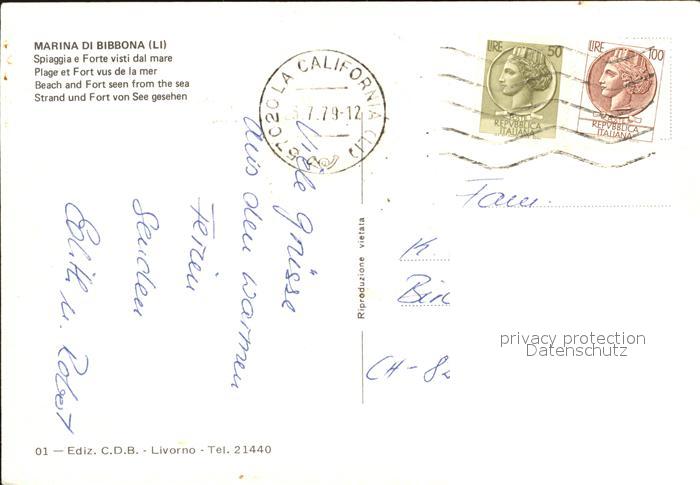 MARINA DI BIBBONA (LI)
Spiaggia e Forte visti dal mare
Plage et Fort vus de la mer
Beach and Fort seen from the sea
Strand und Fort von See gesehen
57020 LA CALIFORNIA (LI)
7.79-12
LIRE 50
REPVBBLICA
ITALIANA
LIRE 100
REPVBBLICA
ITALIANA
Viele Grüsse
aus den warmen
Ferien
senden
Edith u. Robert
Riproduzione vietata
Fam.
K.
Bin
CH-82
privacy protection
Datenschutz
01 — Ediz. C.D.B. - Livorno - Tel. 21440